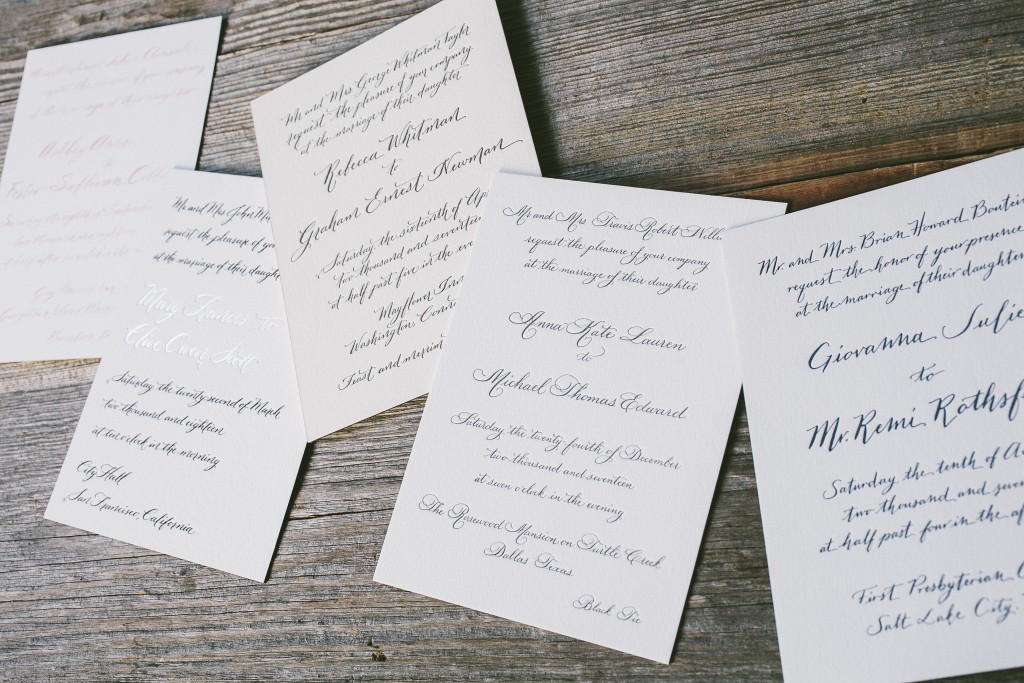 request the pleasure of your company
at the marriage of their daughter
Ashley
to
Sullivan
Mr and Mrs John
request the pleasure of you
at the marriage of their daughter
Mary Frances to
Clive Owen Scott
Saturday the twenty second of March
two thousand and eighteen
at ten o'clock in the morning
City Hall
San Francisco, California
Mr and Mrs George Whitman Taylor
request the pleasure of your company
at the marriage of their daughter
Rebecca Whitman
to
Graham Ernest Newman
Saturday the sixteenth of Ap
two thousand and seventeen
at half past five in the eve
Mayflower
Washington,
Feast and
Mr and Mrs Travis Robert
request the pleasure of your company
at the marriage of their daughter
Anna Kate Lauren
to
Michael Thomas Edward
Saturday the twenty-fourth of December
two thousand and seventeen
at seven o'clock in the evening
The Rosewood Mansion on Turtle Creek
Dallas Texas
Black Tie
Mr. and Mrs Brian Howard
request the honor of your presence
at the marriage of their daughter
Giovanna Julie
to
Mr. Remi Rothsf
Saturday the tenth of A
two thousand and seve
at half past four in the af
First Presbyterian C
Salt Lake City,